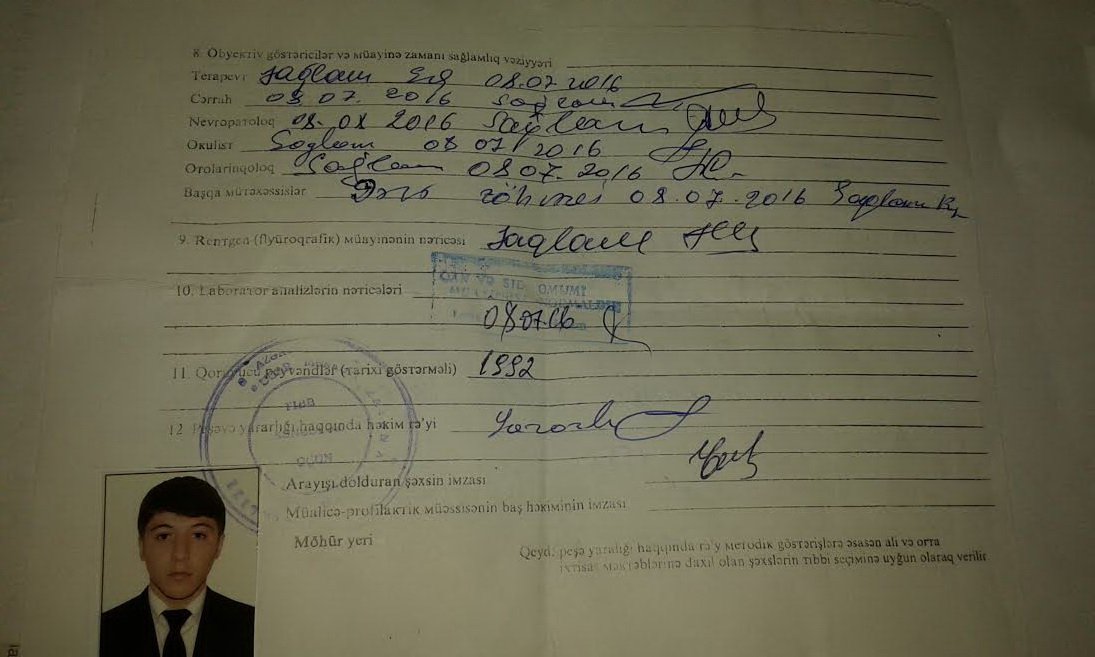 8. Obyektiv göstəricilər və müayinə zamanı sağlamlıq vəziyyəti
Terapevt Sağlam 08.07 2016
Cərrah 08.07. 2016 Sağlam
Nevropatoloq 08.08 2016 Sağlam
Okulist Sağlam 08 07 2016
Otolarinqoloq Sağlam 08 07. 2016
Başqa mütəxəssislər Dəri zöhrəvi 08.07.2016 Saglam
9. Rentgen (flyüroqrafik) müayinənin nəticəsi Saqlam
QAN VƏ SİD. ÜMUMİ
10. Laborator analizlərin nəticələri
08.07.16
11. Qoruyucu peyvəndlər (tarixi göstərməli) 1992
12. Peşəyə yararlığı haqqında həkim rə'yi Yararlı
Arayışı dolduran şəxsin imzası
Müalicə-profilaktik müəssisənin baş həkiminin imzası
Möhür yeri
Qeyd: peşə yaralığı haqqında rə'y metodik göstərişlərə əsasən ali və orta
ixtisas məktəblərinə daxil olan şəxslərin tibbi seçiminə uyğun olaraq verilir